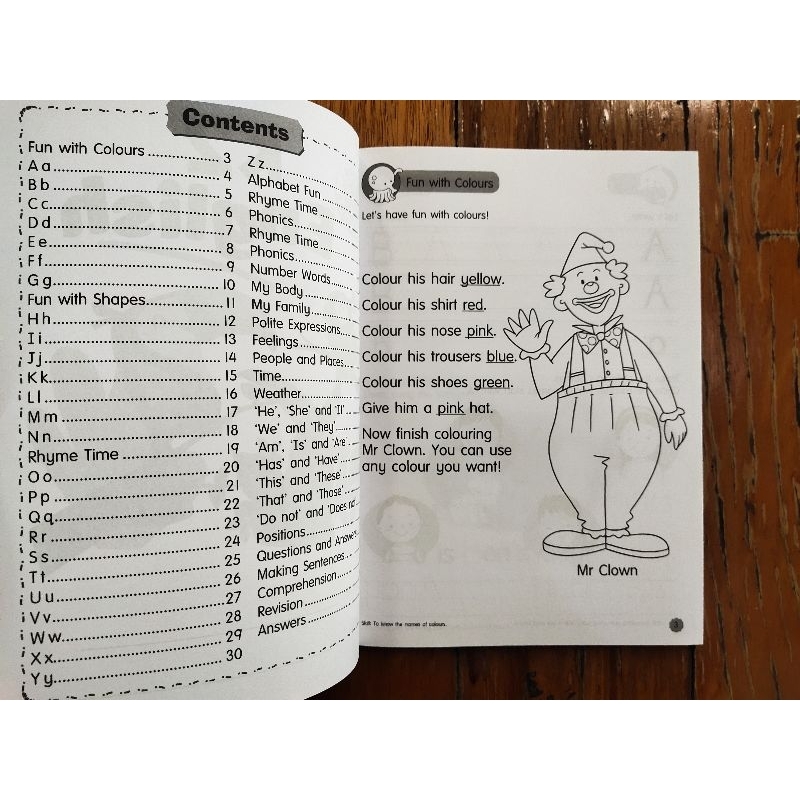 Contents
Fun with Colours ........ 3
A a ........ 4
B b ........ 5
C c ........ 6
D d ........ 7
E e ........ 8
F f ........ 9
G g ........ 10
Fun with Shapes ........ 11
H h ........ 12
I i ........ 13
J j ........ 14
K k ........ 15
L l ........ 16
M m ........ 17
N n ........ 18
Rhyme Time ........ 19
O o ........ 20
P p ........ 21
Q q ........ 22
R r ........ 23
S s ........ 24
T t ........ 25
U u ........ 26
V v ........ 27
W w ........ 28
X x ........ 29
Y y ........ 30
Z z ........
Alphabet Fun ........
Rhyme Time ........
Phonics ........
Rhyme Time ........
Phonics ........
Number Words ........
My Body ........
My Family ........
Polite Expressions ........
Feelings ........
People and Places ........
Time ........
Weather ........
'He', 'She' and 'It' ........
'We' and 'They' ........
'Am', 'Is' and 'Are' ........
'Has' and 'Have' ........
'This' and 'These' ........
'That' and 'Those' ........
'Do not' and 'Does not
Positions ........
Questions and Answers
Making Sentences ........
Comprehension ........
Revision ........
Answers ........
Fun with Colours
Let's have fun with colours!
Colour his hair yellow.
Colour his shirt red.
Colour his nose pink.
Colour his trousers blue.
Colour his shoes green.
Give him a pink hat.
Now finish colouring
Mr Clown. You can use
any colour you want!
Mr Clown
Skill: To know the names of colours.
3